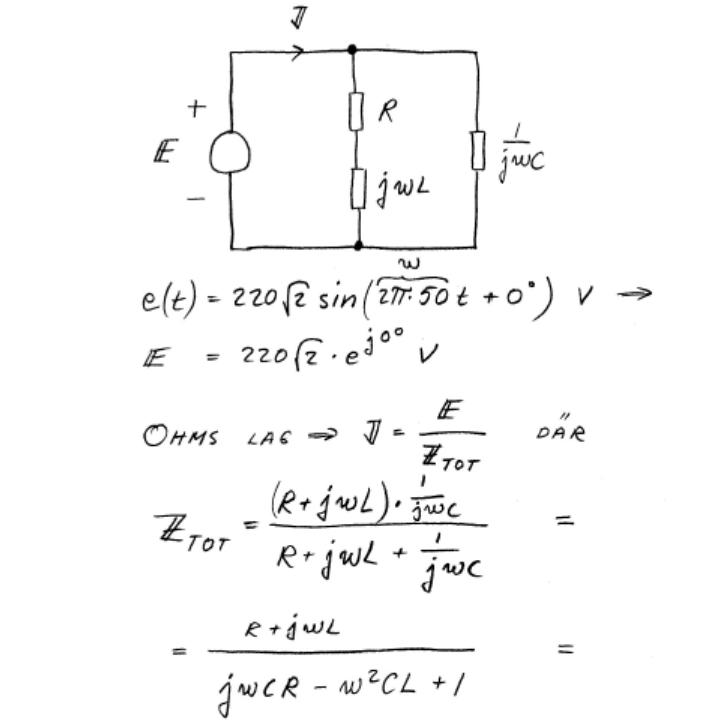 J
+
E
−
R
jωL
1/jωC
ω
e(t) = 220√2 sin(2π·50t + 0°) V →
E = 220√2 · e^j0° V
OHMS LAG ⇒ J = E/Z_TOT DÄR
Z_TOT = (R + jωL) · 1/jωC / R + jωL + 1/jωC =
= R + jωL / jωCR − ω²CL + 1 =